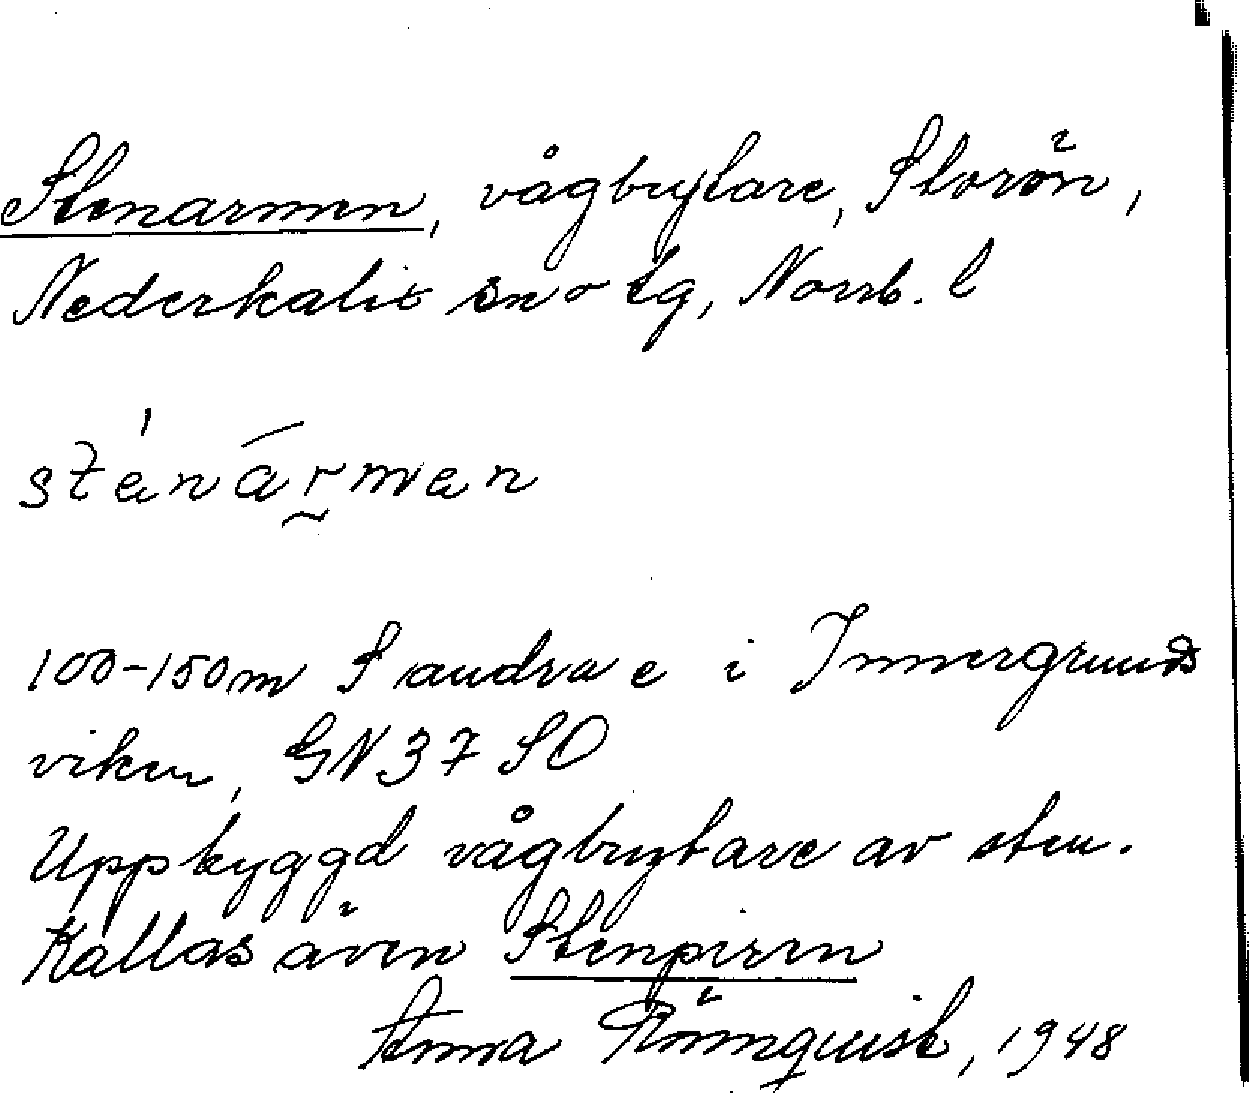 Stenarmen, vågbrytare, Storön,
Nederkalix sn o tg, Norrb. l
sténármen
100-150m S andra e i Innergrunds
viken, GN37 SO
Uppbyggd vågbrytare av sten.
Kallas även Stenpiren
Anna Rönnquist, 1948